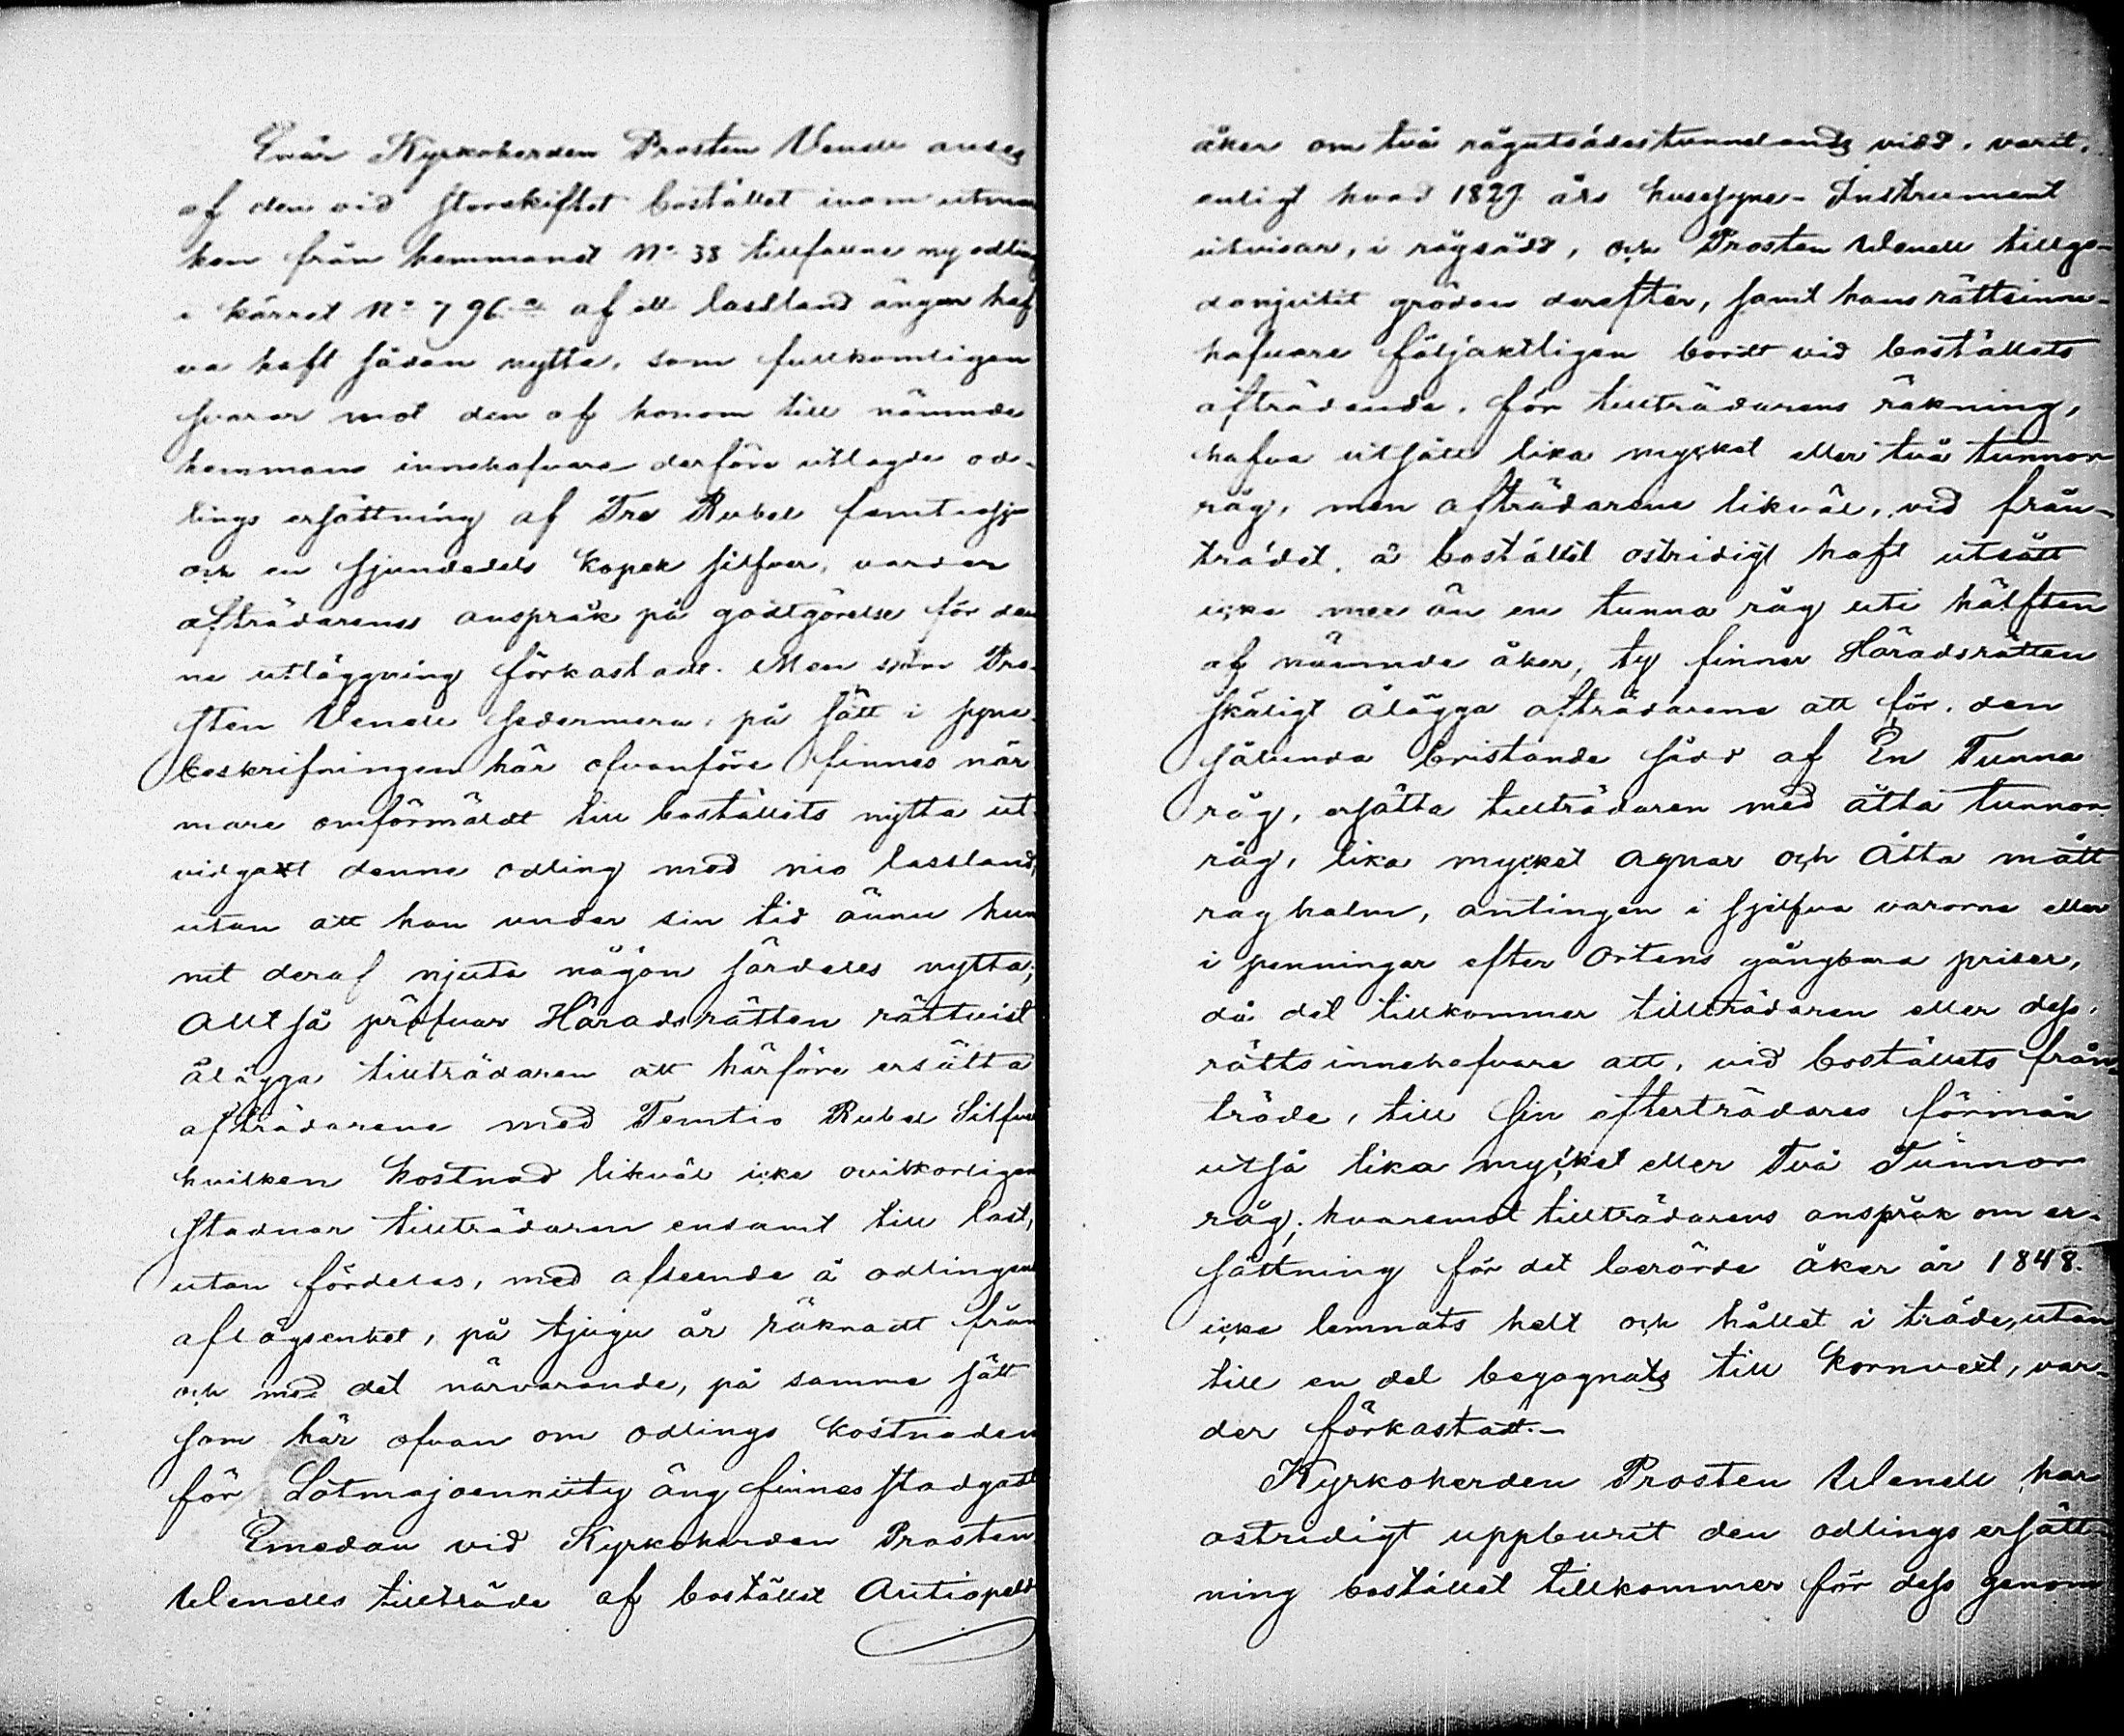 Enär Kyrkoherden Prosten Wenell anses
af den vid storskiftet bostället inom utmar
ken från hemmanet No 38 tillfallne ny odling
i kärret No 796.a af ett lassland ängen haf
va haft sådan nytta, som fullkomligen
svarar mot den af honom till nämnde
hemmans innehafvare derföre utlagde od-
lings ersättning af Tre Rubel femtiosju
och en sjundedels kopek silfver, varder
afträdarenes anspråk på godtgörelse för den
ne utläggning förkastadt. Men som Pro-
sten Wenell sedermera, på sätt i syne-
beskrifningen här ofvanföre finnes när
mare omförmäldt till boställets nytta ut-
vidgat denne odling med nio lassland,
utan att han under sin tid ännu hun
nit deraf njuta någon särdeles nytta;
Alltså pröfvar Häradsrätten rättvist
ålägga tillträdaren att härföre ersätta
afträdarene med Femtio Rubel Silfver
hvilken kostnad likväl icke ovilkorligen
stadnar tillträdaren ensamt till last,
utan fördelas, med afseende å odlingens
aflägsenhet, på tjugu år räknadt från
och med det närvarande, på samma sätt
som här ofvan om odlings kostnaden
för Lotmajoenniity äng finnes stadgadt
Emedan vid Kyrkoherden Prosten
Wenells tillträde af bostället Antiopelt
åker om två rågutsädestunnelands vidd, varit,
enligt hvad 1829 års husesyns-Instrument
utvisar, i rågsådd, och Prosten Wenell tillgo-
donjutit gröden derefter, samt hans rättsinne-
hafvare följaktligen bordt vid boställets
afträdende, för tillträdarens räkning,
hafva utsått lika mycket eller två tunnor
råg, men afträdarene likväl, vid från-
trädet, å bostället ostridigt haft utsått
icke mer än en tunna råg uti hälften
af nämnde åker, ty finner Häradsrätten
skäligt ålägga afträdarene att för den
sålunda bristande sådd af En Tunna
råg, ersätta tillträdaren med åtta tunnor
råg, lika mycket agnar och Åtta mått
raghalm, antingen i sjelfva varorne eller
i penningar efter Ortens gångbara priser,
då det tillkommer tillträdaren eller dess
rättsinnehafvare att, vid boställets från-
träde, till sin efterträdares förmån
utså lika mycket eller Två Tunnor
råg; hvaremot tillträdarens anspråk om er-
sättning för det berörde åker år 1848.
icke lemnats helt och hållet i träde, utan
till en del begagnats till kornvext, var-
der förkastadt.-
Kyrkoherden Prosten Wenell har
ostridigt uppburit den odlings ersätt-
ning bostället tillkommer för dess genom